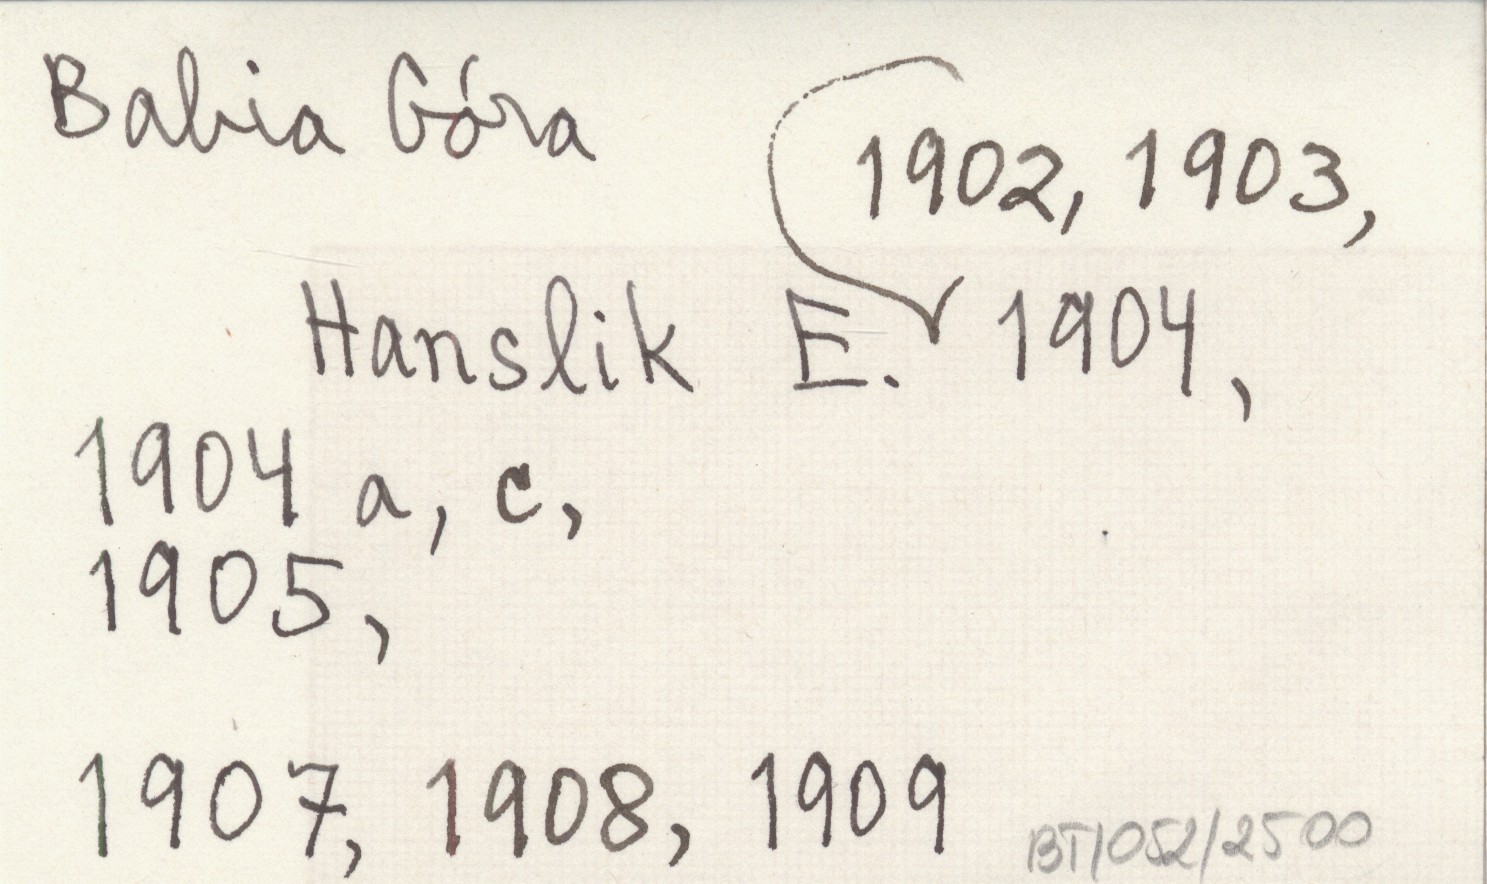 Babia Góra
1902, 1903,
Hanslik E. 1904,
1904 a, c,
1905,
1907, 1908, 1909
BT/052/2500